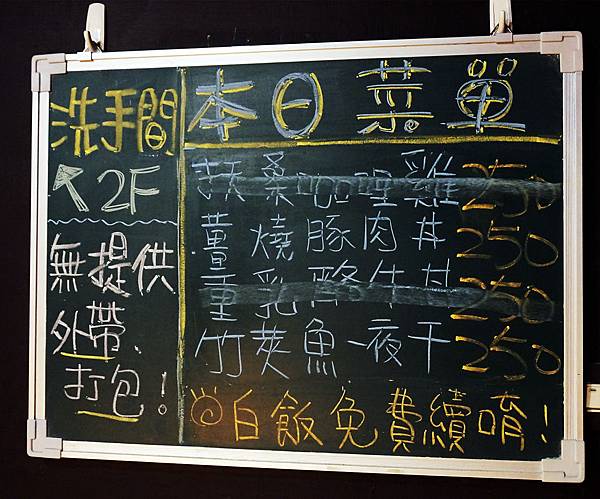 洗手間
↖2F
無提供
外帶、
打包!
本日菜單
桑咖哩雞 250
薑燒豚肉丼 250
重乳酪牛丼 250
竹莢魚一夜干 250
◎白飯免費續唷!